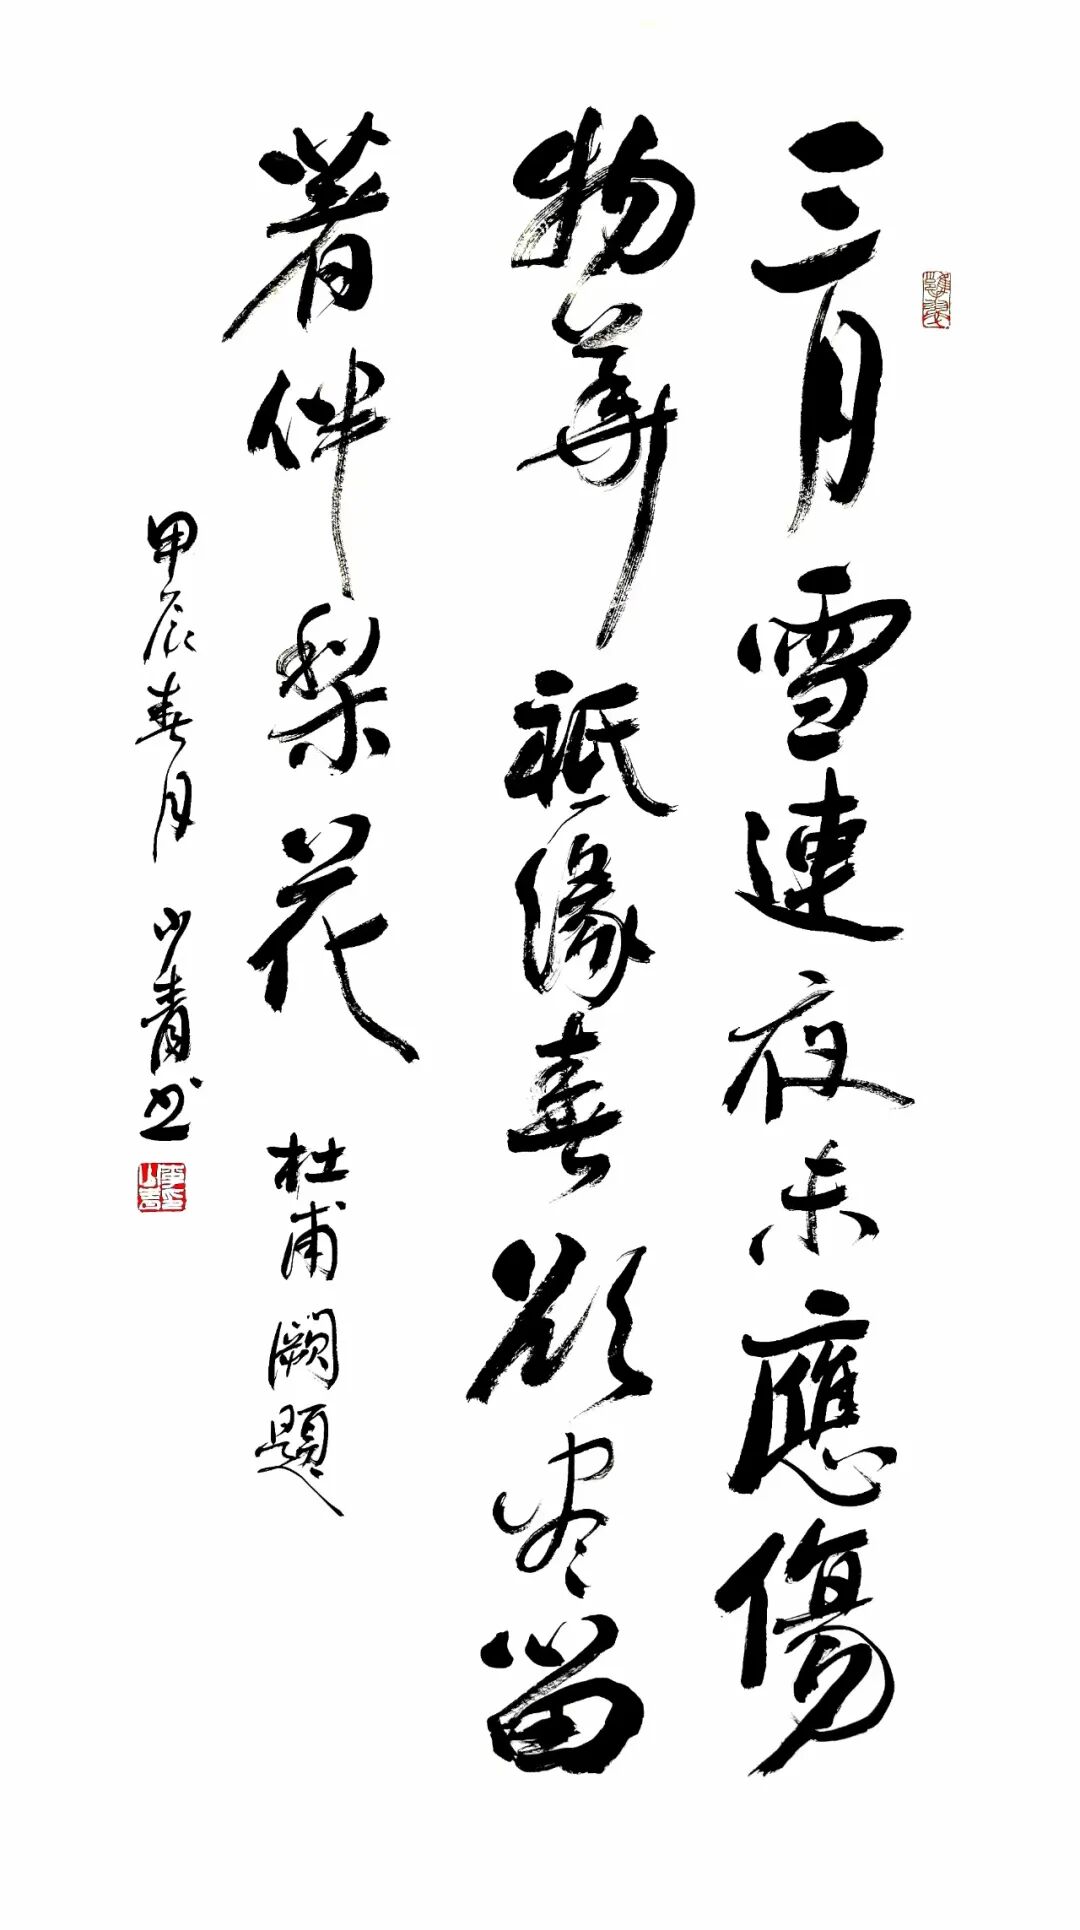 三月雪連夜未應傷
物華祇緣春欲尽留
著伴梨花
杜甫闕題
甲辰春月 山青书